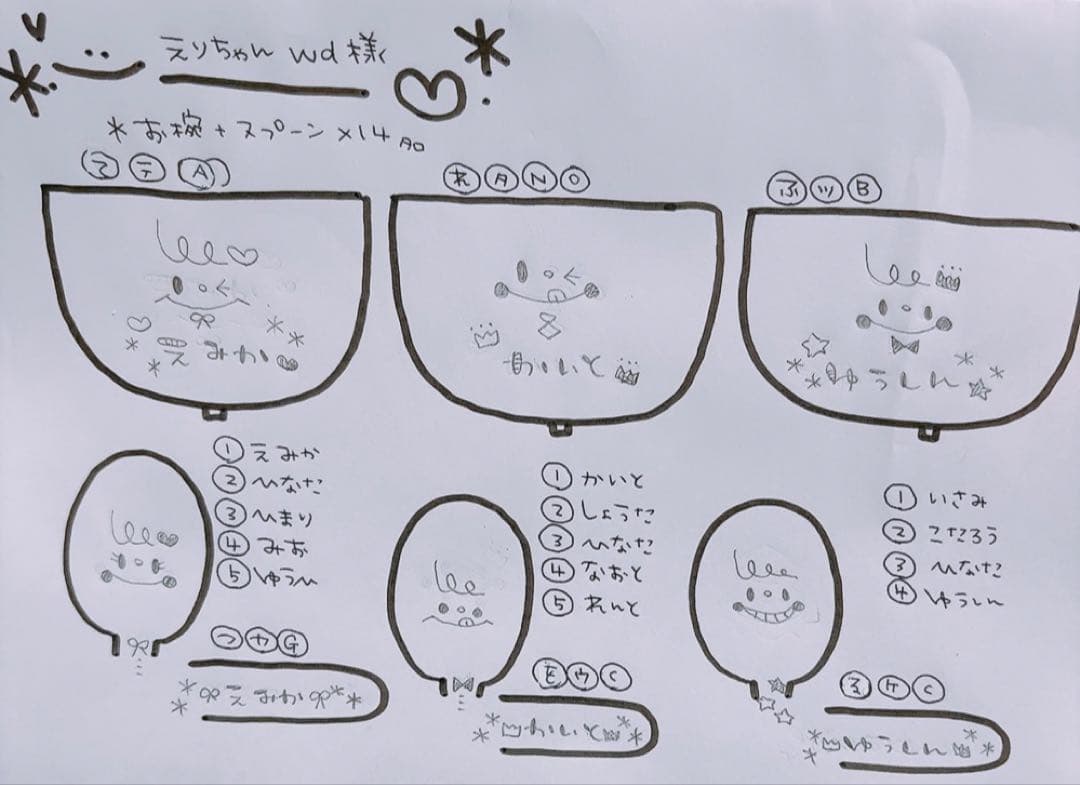 えりちゃん wd 様
*お椀 + スプーン ×14 点
て テ A
れ タ N O
ふ ツ B
えみか
かいと
ゆうしん
① えみか
② ひなた
③ ひまり
④ みお
⑤ ゆうひ
① かいと
② しょうた
③ ひなた
④ なおと
⑤ れんと
① いさみ
② こたろう
③ ひなた
④ ゆうしん
つ ヤ G
を ウ C
る ケ C
えみか
かいと
ゆうしん